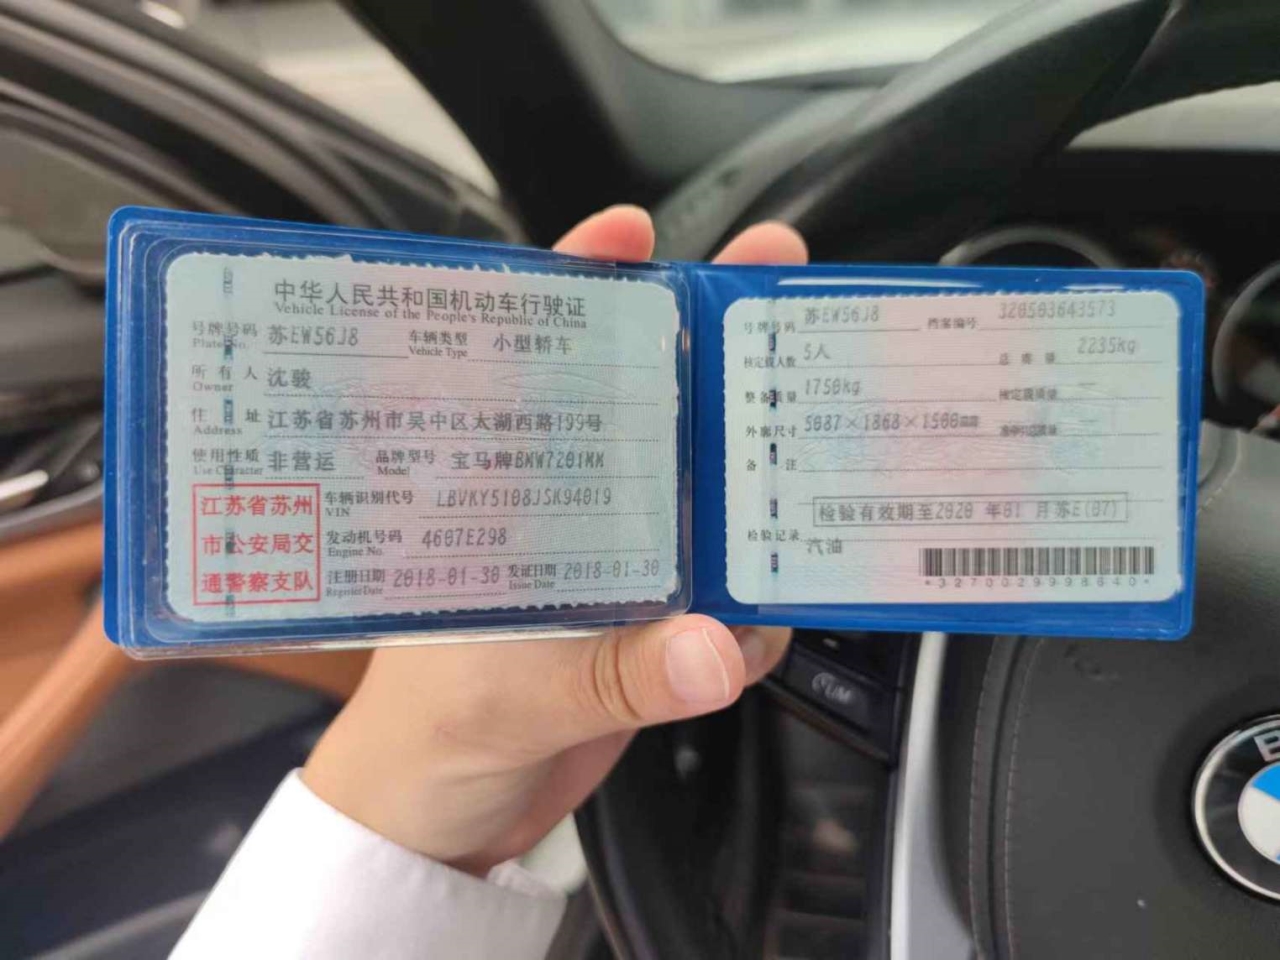 中华人民共和国机动车行驶证
Vehicle License of the People's Republic of China
号牌号码 苏EW56J8 车辆类型 小型轿车
Plate No. Vehicle Type
所有人 沈骏
Owner
住址 江苏省苏州市吴中区太湖西路199号
Address
使用性质 非营运 品牌型号 宝马牌BMW7201MM
Use Character Model
江苏省苏州
市公安局交
通警察支队
车辆识别代号 LBVKY5108JSK94019
VIN
发动机号码 4607E298
Engine No.
注册日期 2018-01-30 发证日期 2018-01-30
Register Date Issue Date
号牌号码 苏EW56J8 档案编号 320503643573
核定载人数 5人 总质量 2235kg
整备质量 1750kg 核定载质量 —
外廓尺寸 5087×1868×1500mm —
备注
检验有效期至2020 年01 月苏E(07)
检验记录
汽油
*3270029998640*
LIM
B